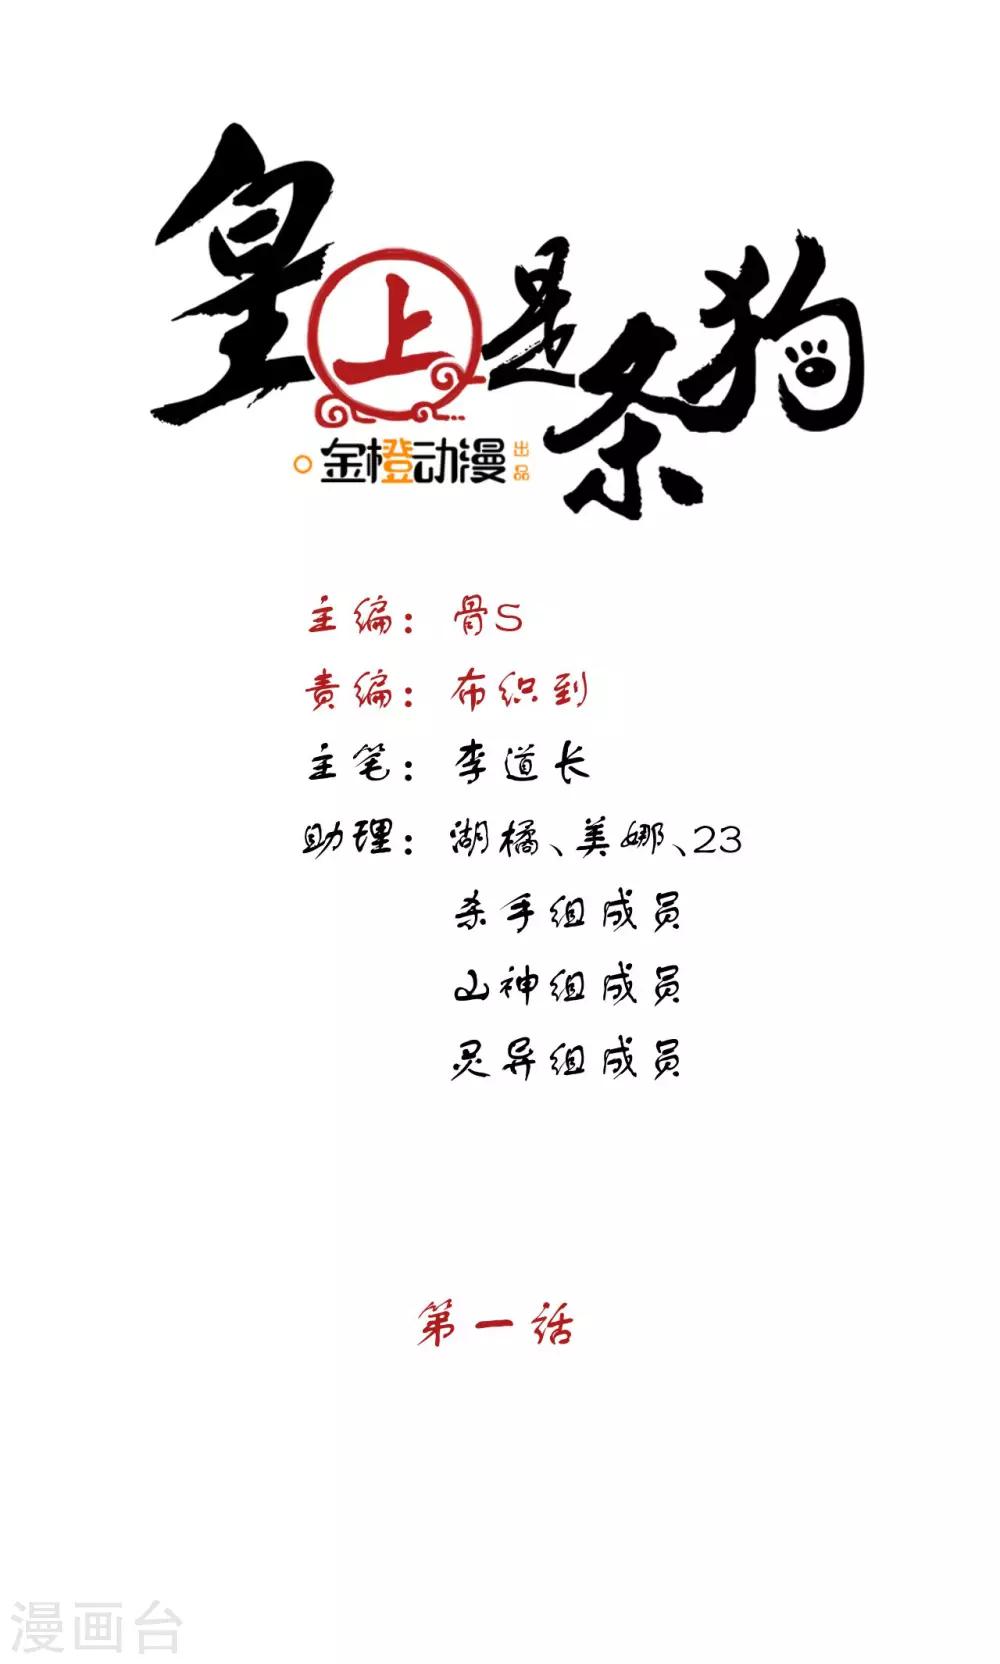 皇上是条狗
金橙动漫 出品
主编：骨S
责编：布织到
主笔：李道长
助理：湖橘、美娜、23
杀手组成员
山神组成员
灵异组成员
第一话
漫画台